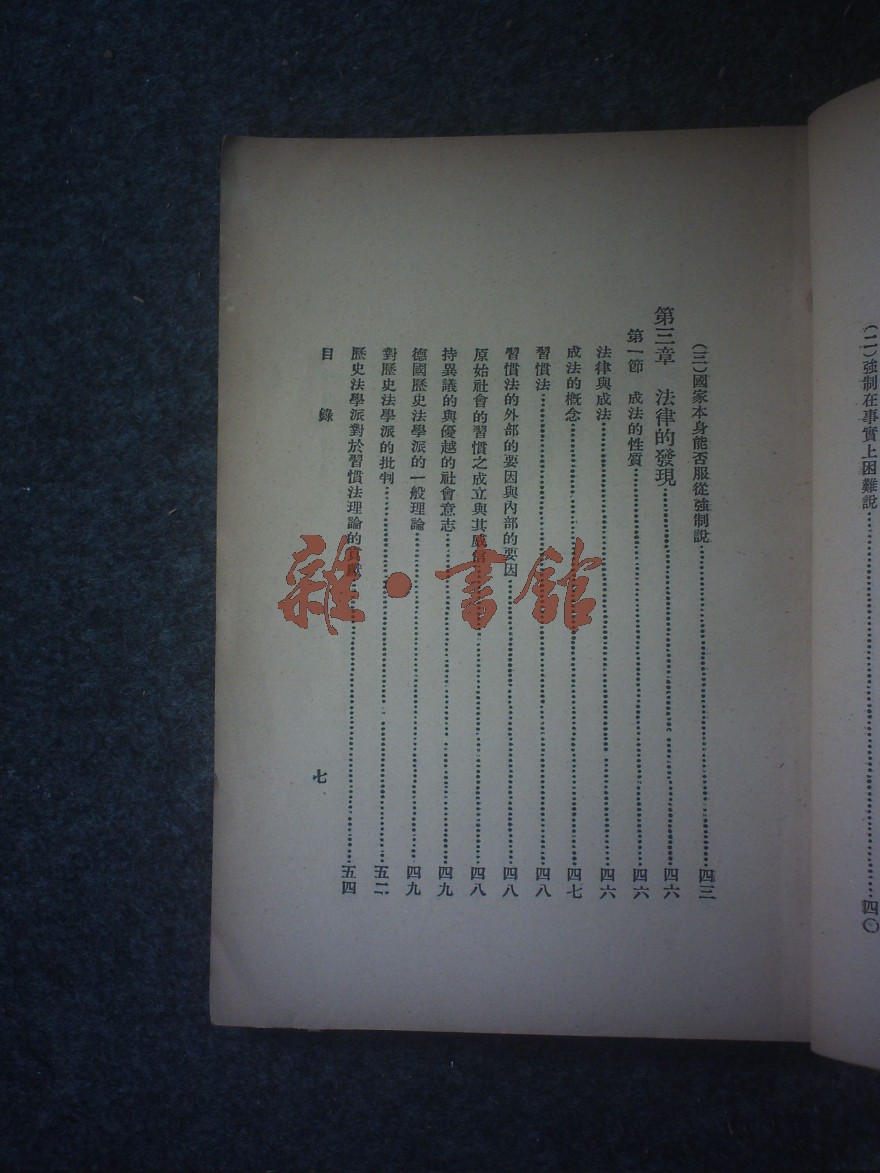 (二)強制在事實上困難說……四〇
(三)國家本身能否服從強制說……四三
第三章 法律的發現……四六
第一節 成法的性質……四六
法律與成法……四六
成法的概念……四七
習慣法……四八
習慣法的外部的要因與內部的要因……四八
原始社會的習慣之成立與其威信……四八
持異議的與優越的社會意志……四九
德國歷史法學派的一般理論……四九
對歷史法學派的批判……五二
歷史法學派對於習慣法理論的貢獻……五四
目錄 七
雜·書館